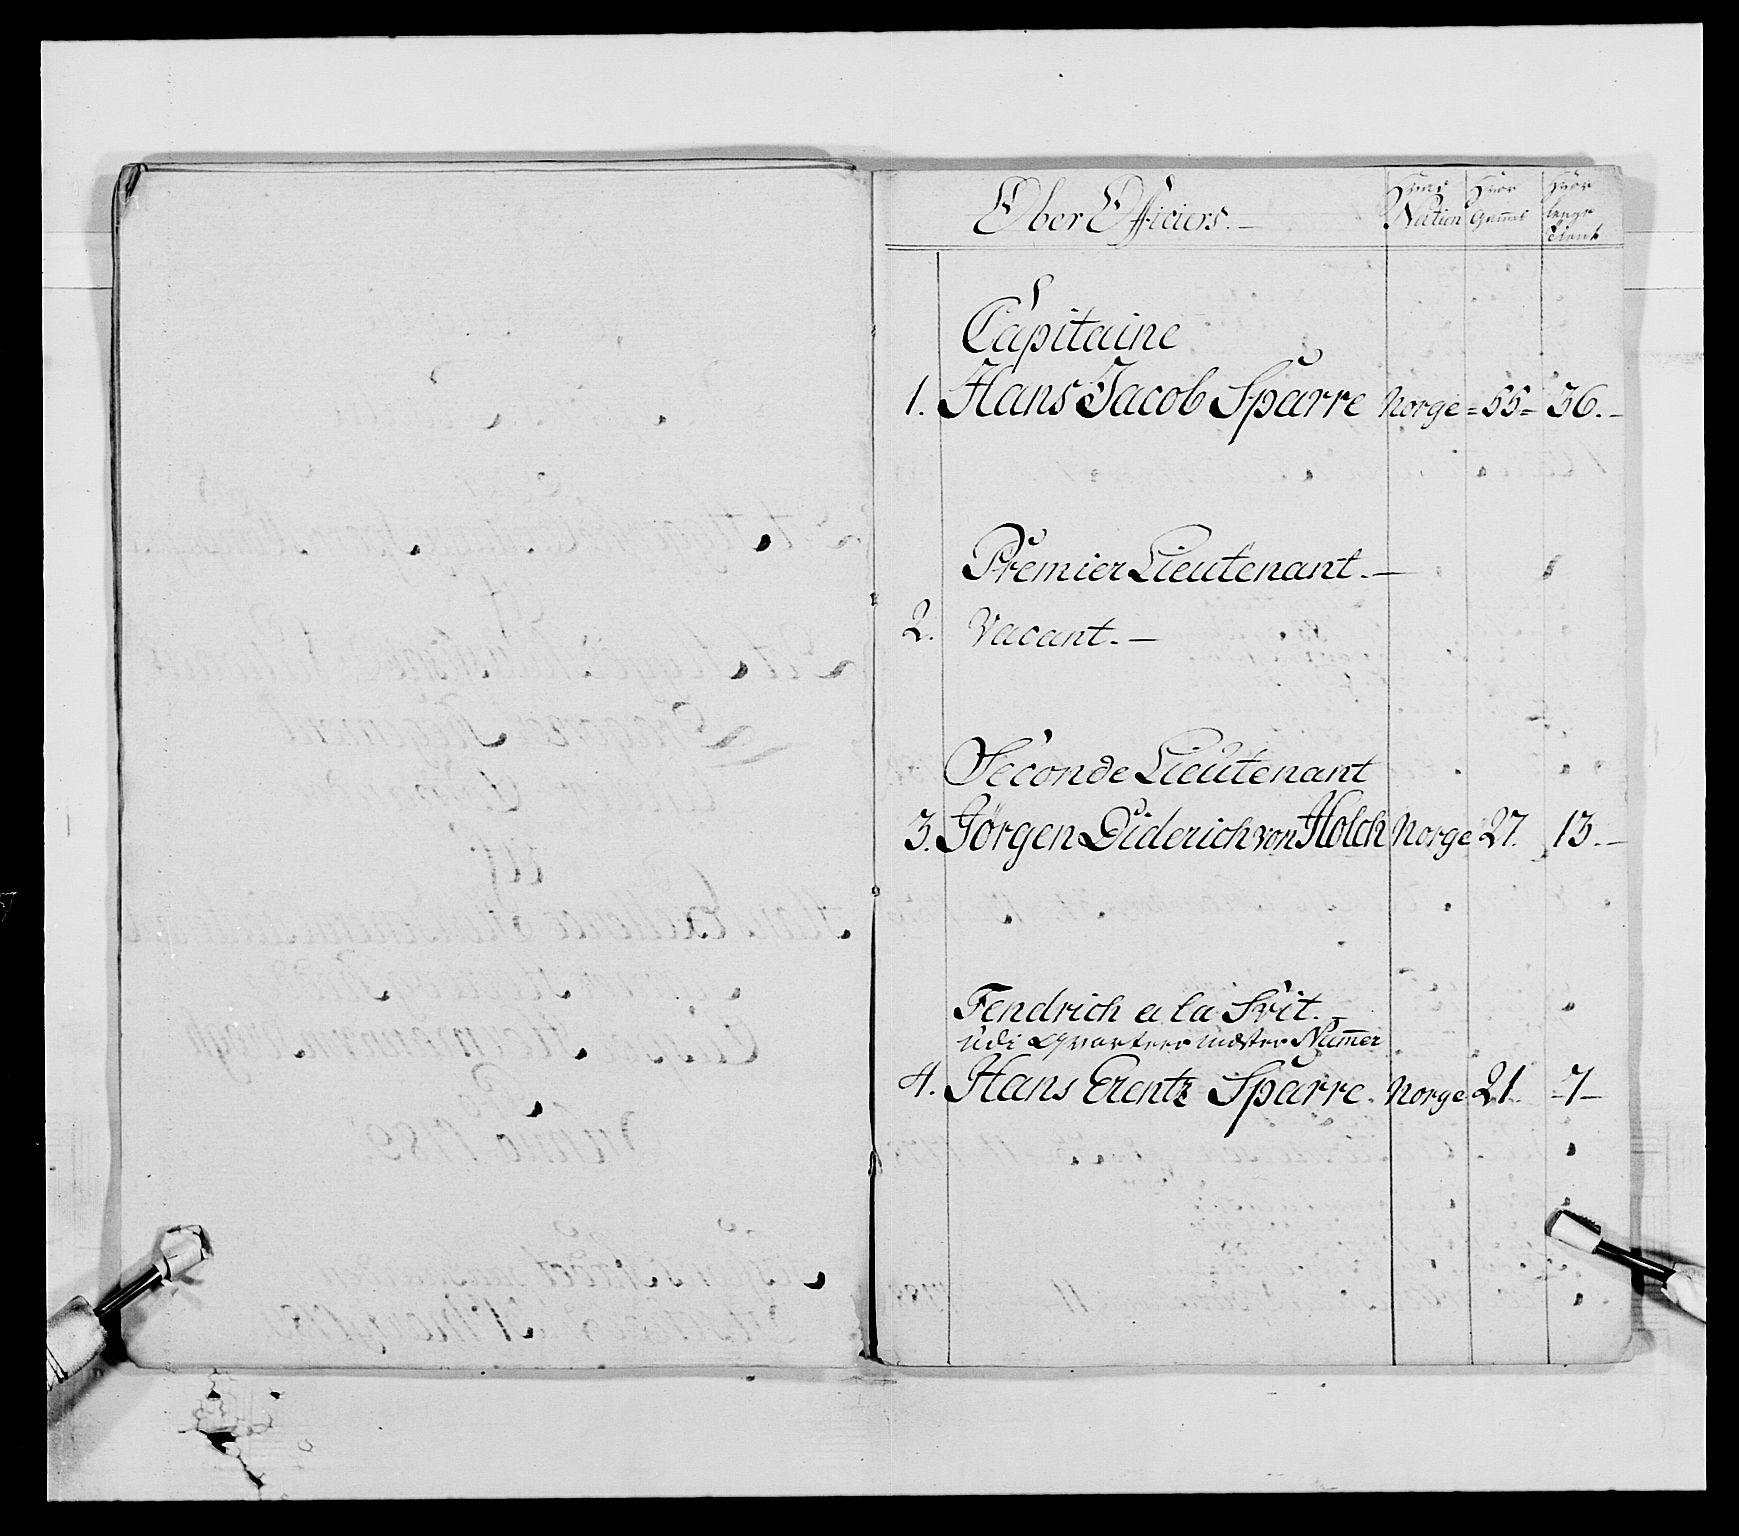 Ober Officiers. —
Hvad Nation
Hvor Gammel
Hvor lenge tient
Capitaine
1. Hans Jacob Sparre Norge = 55 = 36. —
Premier Lieutenant. —
2. Vacant. —
Seconde Lieutenant
3. Jörgen Diderich von Holch Norge 27. 13. —
Fendrich a la Svit. —
udi Qvarteer mæster Num̅er
4. Hans Erentz Sparre. Norge 21 - 7 —